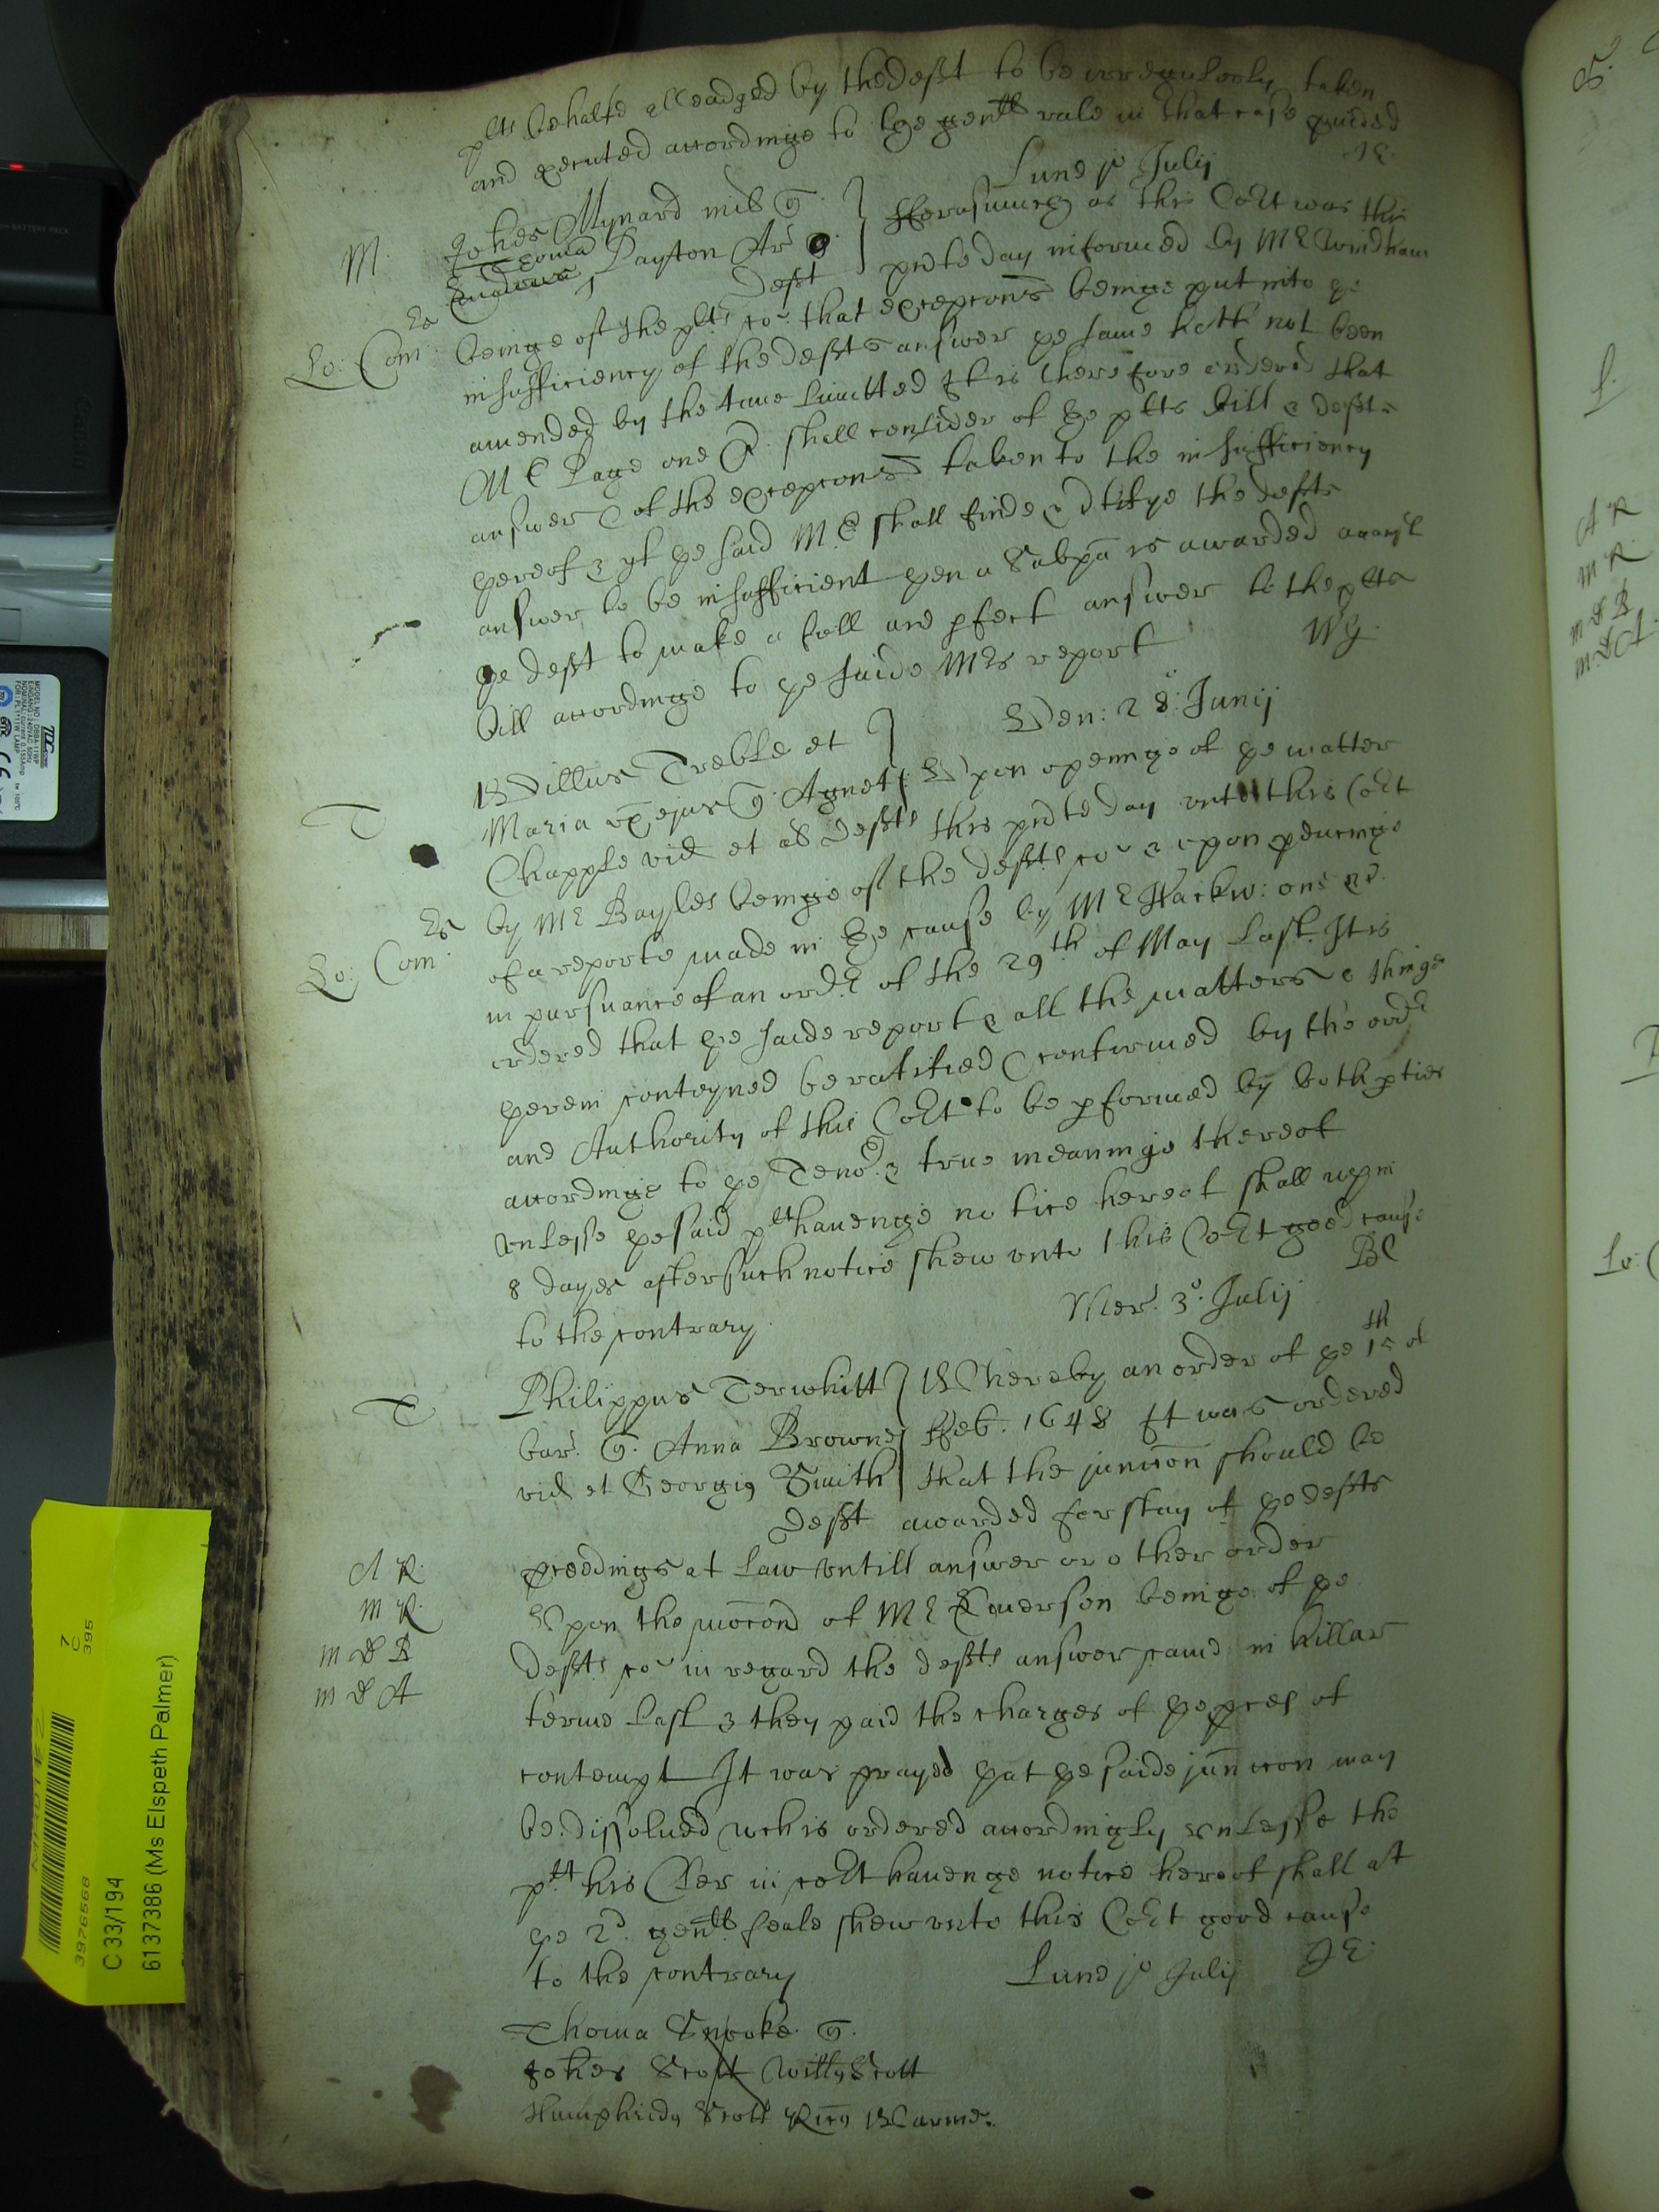 plts behalfe alleadged by the deft to be irregulerly taken
and executed accordinge to the genll rule in that case pvided
Lune jo Julij
M. Johes Mynard mil
Payton Ar
deft
fforasmuch as this Cort was this
pnte day informed by Mr Windham
Lo: Com:
beinge of the plts co: that excepcons beinge put into ye
insufficiency of the defts answer ye same hath not been
amended by the tyme limitted It is therefore ordered that
Mr Page one &c. shall consider of the plts bill & defts
answer & of the excepcons taken to the insufficiency
yereof & yf ye said Mr shall finde & ctifye the defts
answer to be insufficient yen a Subpa is awarded against
ye deft to make a full and pfect answer to the plts
bill accordinge to ye saide Mrs report
Ven: 28o: Junij
T Willus Treble et
Maria ux ejus Agnet
Chapple vid et al defts
Upon openinge of ye matter
this pnte day unto this Cort
Lo: Com:
by Mr Bayles beinge of the defts co & upon peuringe
of a reporte made in the cause by Mr Hackw: one &c.
in pursuance of an order of the 29th of May last. It is
ordered that ye saide report & all the matters & things
yerein conteyned be ratified & confirmed by the order
and Authority of this Cort to be pformed by both pties
accordinge to ye Tenor & true meaninge thereof
Unlesse ye said plt havenge notice hereof shall wthin
8 dayes after such notice shew unto this Cort good cause
to the contrary.
Mer. 3o. Julij
T Philippus Terwhitt
bar. Anna Browne
vid et Georgiu Smith
deft
Whereby an order of ye 15th of
ffeb. 1648 It was ordered
that the junccon should be
awarded for stay of ye defts
A R.
M R.
pceedings at Law Untill answer or other order
Upon the mocon of Mr Emerson beinge of ye
defts co in regard the defts answer came in hillar
terme last & they paid the charges of ye pces of
contempt It was prayed yat ye saide junccon may
be dissolved wch is ordered accordingly unlesse the
plt his Cler in cort havenge notice hereof shall at
ye 2d. genll seale shew unto this Cort good cause
to the contrary
Lune jo Julij
Thoma Snooke
Johes Scott Willu Scott
Humphridu Scott Ricu Warme
TLC
MODEL NO. DBBA-11WP
EINGANG: 240VAC 50Hz
NOMINAL current 0.155Amp
FOR: PL 1*11W LAMP
Canon
BATTERY PACK
7
C
395
3976568
C 33/194
6137386 (Ms Elspeth Palmer)
A R
M R